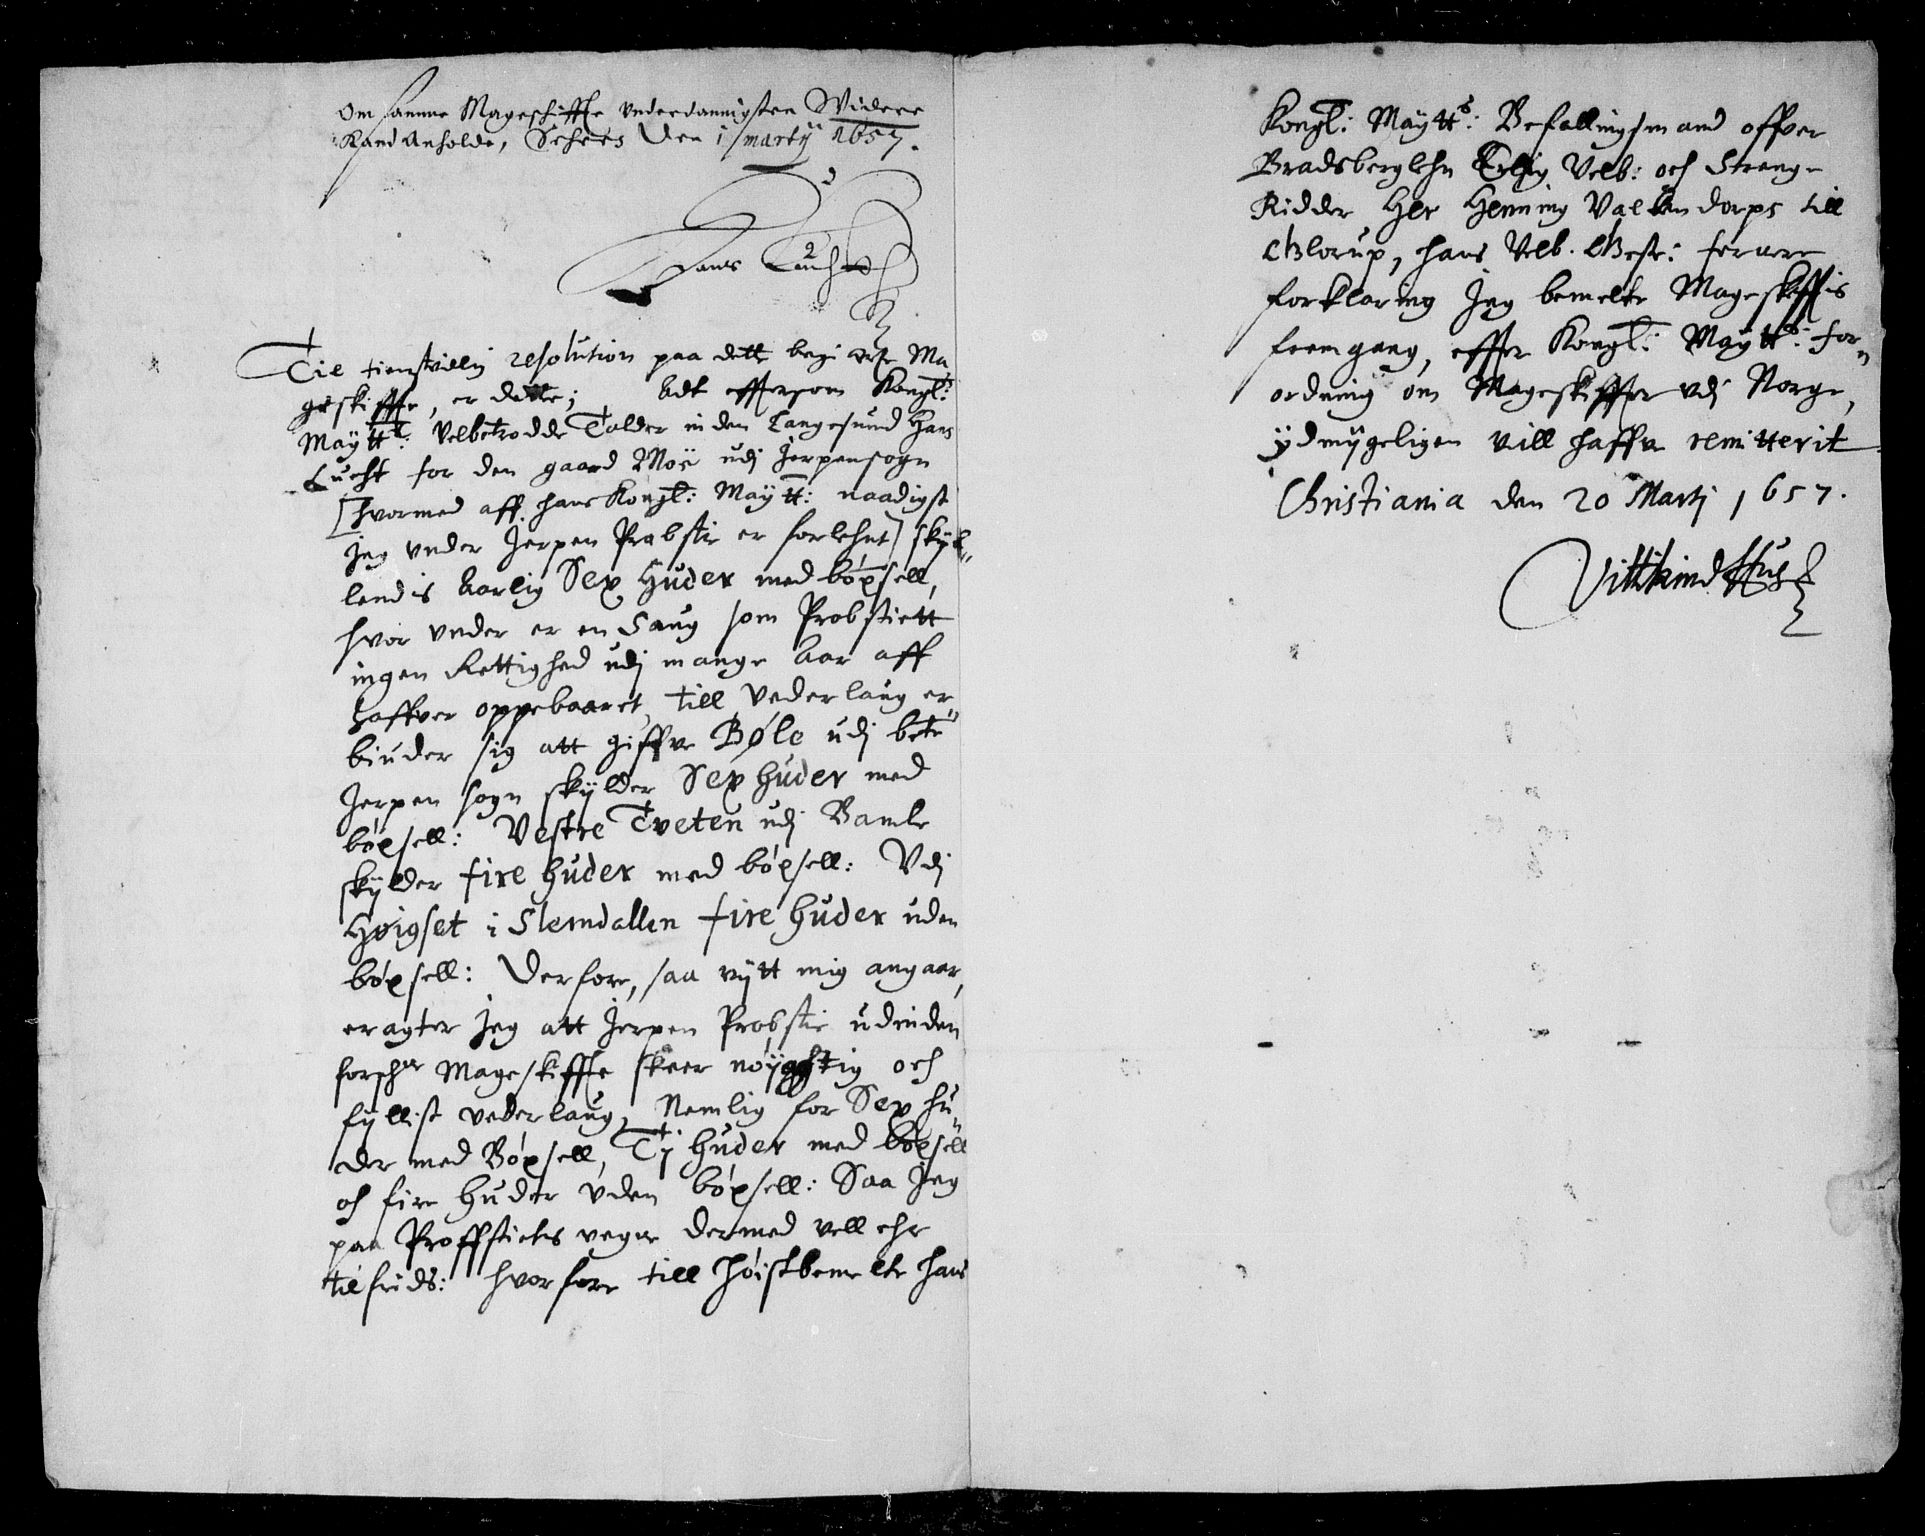 Om samme Mageschiffte vnderdannigsten Widere
Kand Anholde, Schees Den 1 marty 1657.
Hans Lucht
Til tienstvillig resolution paa dette begierte Ma,
geskiffte, er dette; Adt effttersom Kongl:
Maÿtts: Velbetrodde Tolder inden Langesund Hans
Lucht for den gaard Moÿ udj Jerpensogn
[hvormed aff hans Kongl: Maÿtt: naadigst
jeg vnder Jerpen Prabstie er forlehnt] skÿl„
lendis Aarlig Sex Huder med bøxsell,
hvor vnder er en Saug som Probstiett
ingen Rettighed udj mange Aar aff
haffver oppebaaret, till vederlaug er„
biuder sig att giffve Bøle udj bete
Jerpen sogn skÿlder Sex huder med
bøxsell: Vestre Tveten udj Bamle
skÿlder fire huder med bøxsell: Vdj
Høigset i Slemdallen fire huder uden
bøxsell: Derfore, saa vÿtt mig angaar,
eragter jeg att Jerpen Probstie udinden
forschne Mageskiffte skeer nøÿachtig och
fyllist vederlaug, Nemlig for Sex hu„
der med Bøxsell, Tj huder med bøxsell
och fire huder vden bøxsell: Saa Jeg
paa Proffstiets vegne dermed vell ehr
tilfreds: hvorfore till Høistbemelte hans
Kongl: Maÿtts: Befallingsmand offver
Bradsberglehn Erlig Velb: och Strenge
Ridder Her Henning Valkendorps till
Glorup, hans Velb. Gestr: fernere
forklaring Jeg bemelte Mageskifftis
fremgang, effter Kongl: Maÿtts: for„
ordning om Mageskiffter vdj Norge,
ÿdmÿgeligen vill haffve remitterit
Christiania den 20 Martj 1657.
Vittikind Hus